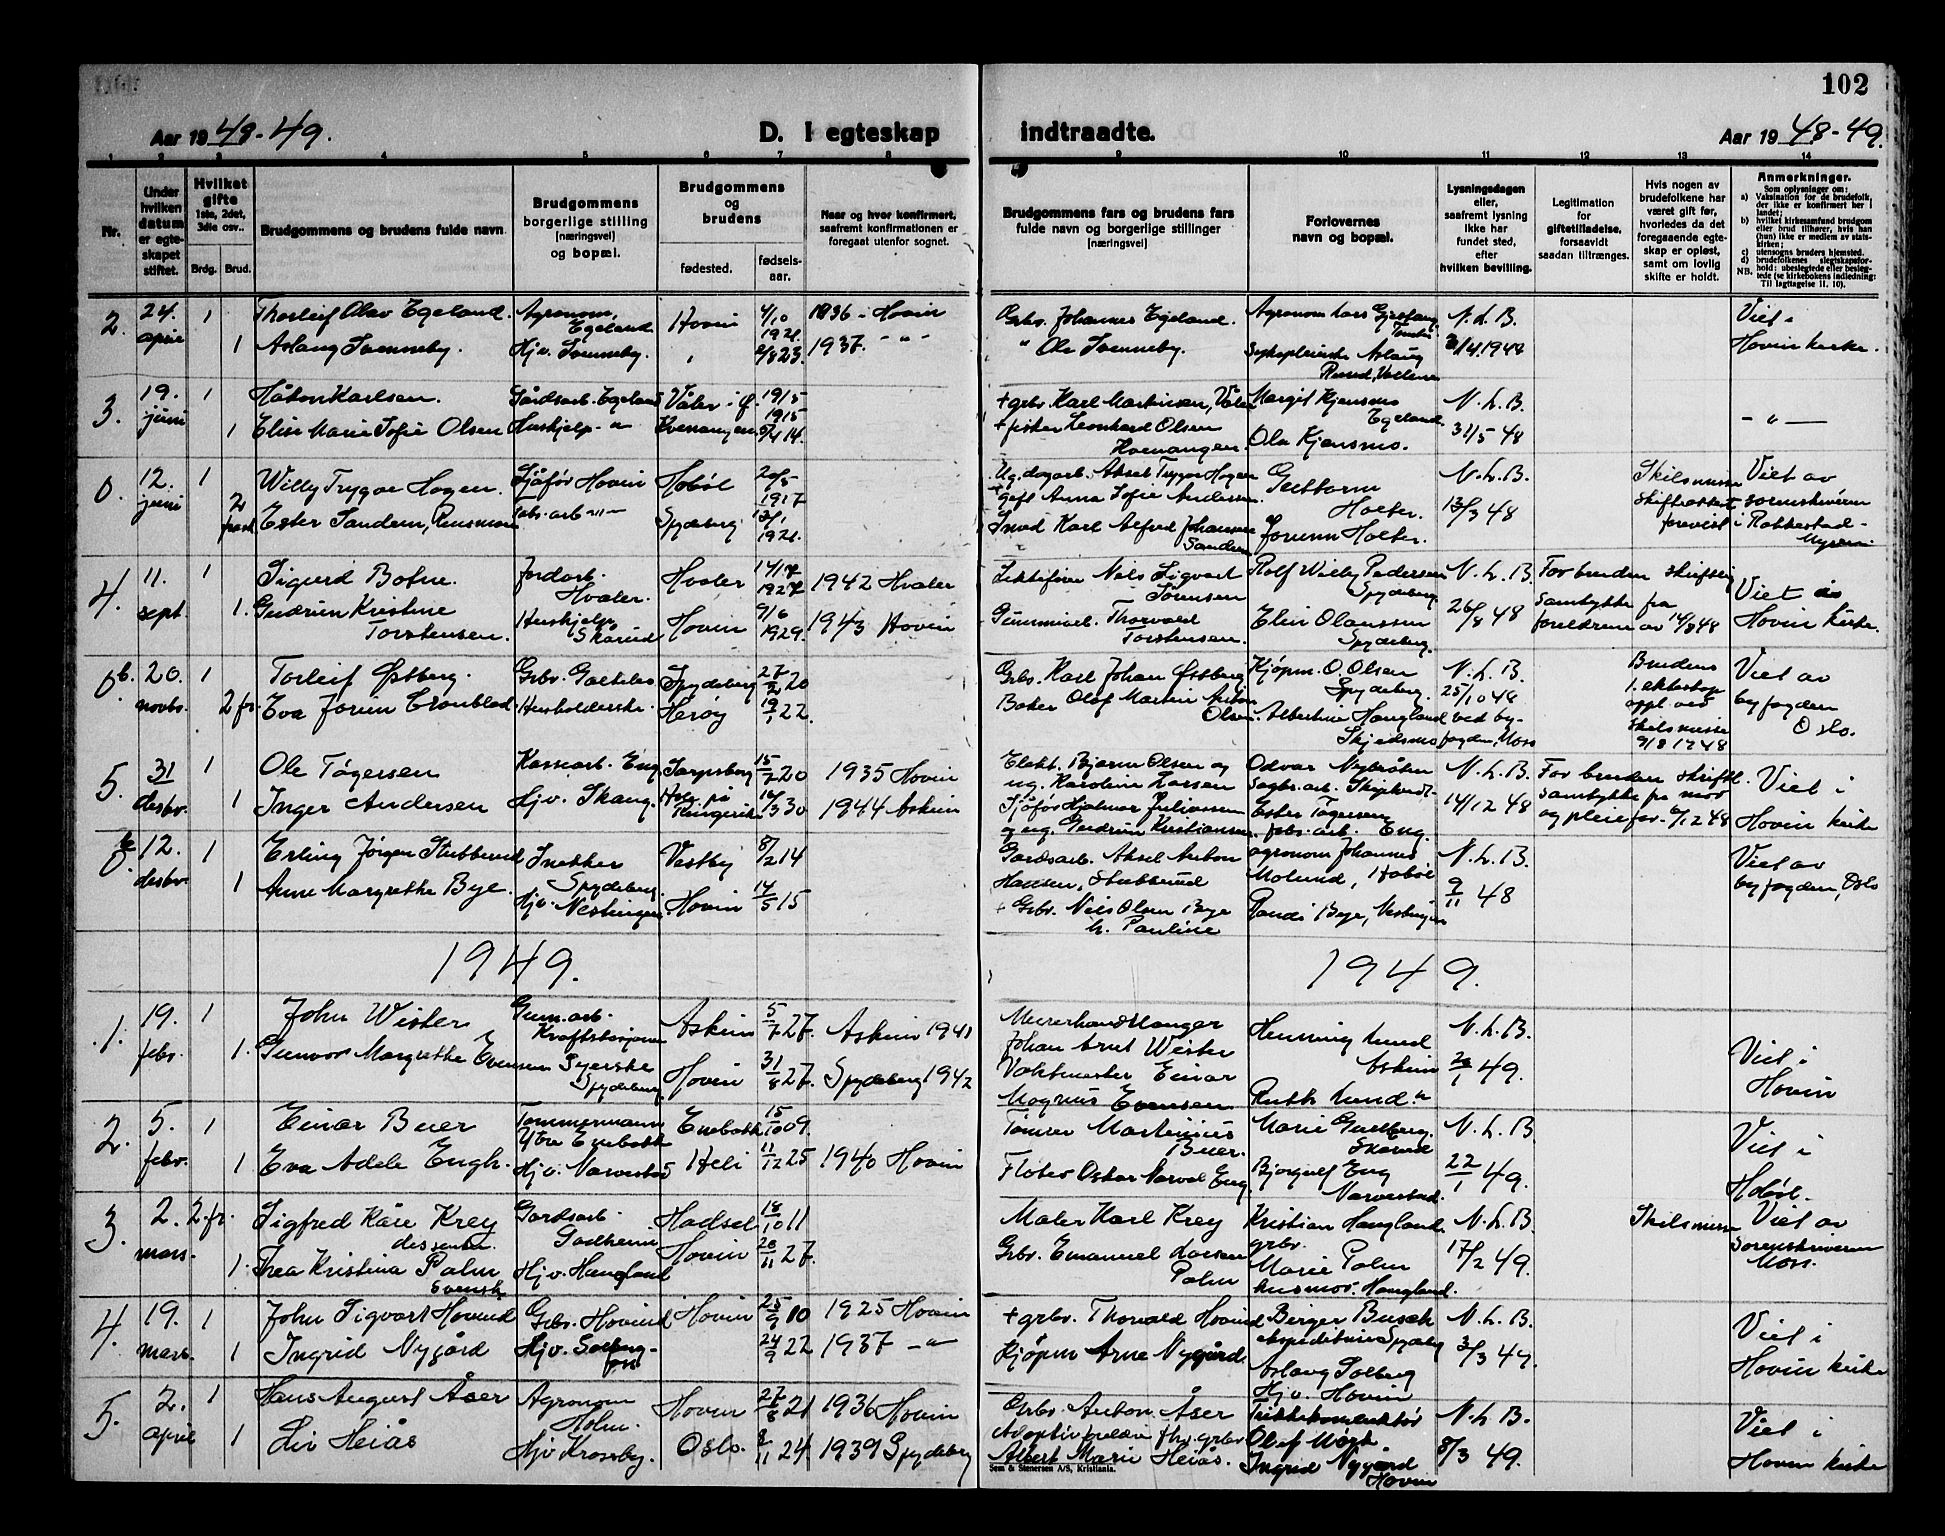 102
Aar 1948-49.
D. I egteskap
indtraadte.
Aar 1948-49.
1 2 3 4 5 6 7 8 9 10 11 12 13 14
Nr.
Under hvilken datum er egteskapet stiftet.
Hvilket gifte 1ste, 2det, 3die osv..
Brdg. Brud.
Brudgommens og brudens fulde navn
Brudgommens borgerlige stilling (næringsvei) og bopæl.
Brudgommens og brudens
fødested.
fødselsaar.
Naar og hvor konfirmert, saafremt konfirmationen er foregaat utenfor sognet.
Brudgommens fars og brudens fars fulde navn og borgerlige stillinger (næringsvei)
Forlovernes navn og bopæl.
Lysningsdagen eller, saafremt lysning ikke har fundet sted, efter hvilken bevilling.
Legitimation for giftetilladelse, forsaavidt saadan tiltrænges.
Hvis nogen av brudefolkene har været gift før, hvorledes da det foregaaende egteskap er opløst, samt om lovlig skifte er holdt.
Anmerkninger.
Som oplysninger om:
a) Vaksination for de brudefolk, der ikke er konfirmert her i landet;
b) hvilket kirkesamfund brudgom eller brud tilhører, hvis han (hun) ikke er medlem av statskirken;
c) utensogns bruders hjemsted.
d) brudefolkenes slegtskapsforhold: ubeslegtede eller beslegtede (se kirkebokens indledning: Til iagttagelse II. 10).
NB.
2. 24. april 1 Thorleif Olav Egeland. Agronom, Egeland Hovin 4/10 1921. 1936 - Hovin
1 Aslaug Svenneby. Hjv. Svenneby. " 2/8 23. 1937. - " -
Grbr. Johannes Egeland. Agronom Lars N. L. B. Viet i
" Ole Svenneby. Sykepleierske Aslaug 1948 Hovin kirke.
3. 19. juni 1 Håkon Karlsen. Gårdsarb. Egeland Våler i Ø. 19/5 1915
1 Elise Marie Sofie Olsen Hushjelp - " Kvenangen 5/4 14.
+ grbr. Karl Martinsen, Våler Margit Kjensmo Egeland N. L. B.
+ fisker Leonhard Olsen Kvenangen. Ola Kjensmo. 31/5 48 - " -
0. 12. juni 1 Willy Trygve Hagen. Sjåfør Hovin Hobøl 20/5 1917
2 frask. Ester Sandem, Fabr. arb - " - Spydeberg 1921.
Ug. dagarb. Aksel Trygve Hagen Holter. N. L. B. Skilsmisse Viet av
gift Anna Sofie Andersen. 13/3 48 skifteattest sorenskriveren
Smed Karl Alfred Johansen Sandem Jorunn Holter. forevist i Rakkestad - Mysen
4. 11. sept. 1 Sigurd Botne. Jordarb. Hvaler. Hvaler 1927 1942 Hvaler
1. Gudrun Kristine Torstensen. Hushjelp Skårud Hovin 9/6 1929. 1943 Hovin
Niels Sigvart Sørensen Rolf Willy Pedersen Spydeberg N. L. B. For bruden skriftlig Viet i
Gummiarb. Thorvald Torstensen. Elin Olaussen Spydeberg. 26/8 48 samtykke fra foreldrene av 14/8 48 Hovin kirke.
0b. 20. novbr. 1 Torleif Østberg. Grbr. Spydeberg 27/2 20
2 fr. Eva Jorun Cronblad Husholderske. Herøy 19/1 22.
Grbr. Karl Johan Østberg Kjøpm. O. Olsen Spydeberg. N. L. B. 25/10 48 Brudens 1. ekteskap oppl. ved skilsmisse Viet av
Baker Olaf Martin Anton Olsen. Albertine Haugland Skjedsmo ved byfogden, Moss 9/8 1248 byfogden Oslo.
5. 31 desbr. 1 Ole Tøgersen Kassearb. Eng Sarpsborg 15/7 20 1935 Hovin
1 Inger Andersen Hjv. Skaug. Hole på Ringerike 30 1944 Askim
Elekt. Bjarne Olsen og ug. Karoline Larsen Odvar Nybråten Sagbr. arb. N. L. B. For bruden skriftl. Viet i
Sjåfør Hjalmar Juliussen og ug. Gudrun Kristiansen. Ester Tøgersen fabr. arb. Eng. 14/12 48 samtykke fra mor og pleiefar. 9/12 48 Hovin kirke
12. desbr. 1 Erling Jørgen Stubberud Snekker Spydeberg Vestby 8/2 14
1 Anne Margrethe Bye. Hjv. Hovin 14/5 15
Gardsarb. Aksel Anton Hansen, Stubberud agronom Johannes Molund, Hobøl N. L. B. Viet av
+ Grbr. Niels Olsen Bye h. Pauline Randi Bye, 9/11 48 byfogden, Oslo
1949. 1949.
1. 19. febr. 1 John Wister Gum. arb. Askim 5/7 27. Askim 1941
1. Gunvor Margrethe Evensen Syerske Spydeberg Hovin 31/8 27. Spydeberg 1942
Murerhandlanger Johan Arnt Wister Henning Lund Askim N. L. B. Viet i
Vaktmester Einar Magnus Evensen Ruth Lund " 49. Hovin
2. 5. febr. 1 Einar Buer Tømmermann Ytre Enebakk Enebakk 15/10 09.
1 Eva Adele Engh. Hjv. Narvestad Heli 11/12 25 1940 Hovin
Tømrer Martinius Buer. Marie Skårud N. L. B. Viet i
Fløter Oskar Narval Eng. Bjorgulf Eng Narvestad. 22/1 49. Hobøl.
3. 2. mars. 2. fr. Sigfred Kåre Krey Gardsarb. Hadsel 18/10 11
dissenter.
1. Thea Kristina Palm Svensk Hjv. Haugland Hovin 27.
Maler Karl Krey Kristian Haugland grbr. N. L. B. Skilsmisse Viet av
Grbr. Emanuel Larsen Palm Marie Palm husmor. Haugland. 17/2 49. sorenskriveren Moss.
4. 19. mars. 1 John Sigvart Hovind Grbr. Hovind Hovin 25/9 00 1925 Hovin
1 Ingrid Nygård Hjv. 24/9 22 1937 - " -
+ grbr. Thorvald Hovind Birger Busch N. L. B. Viet i
Kjøpm Arne Nygård. Aslaug Solberg Hjv. Hovin 3/3 49. Hovin kirke
5. 2. april 1 Hans August Åser Agronom Holm. Hovin 27/8 21 1936 Hovin
1 Liv Heiås Hjv Krosby. Oslo. 24 1939 Spydeberg
Grbr. Anton Åser Olaf N. L. B. Viet i
Adoptivforeldre fhv. grbr. Albert Marie Heiås. Ingrid Nygård Hovin 8/3 49. Hovin kirke
Sem & Stenersen A/S, Kristiania.